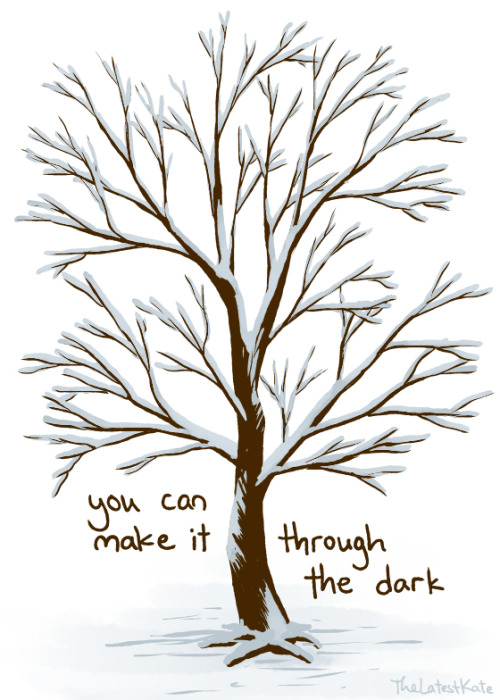 you can
make it through
the dark
TheLatestKate